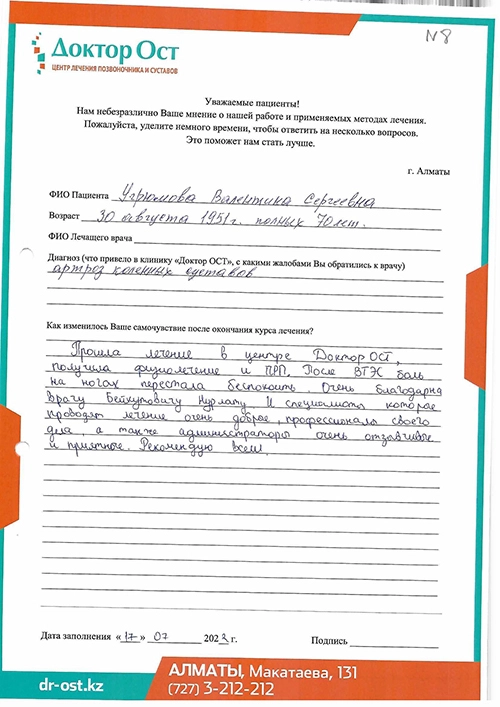 N 8
Доктор Ост
ЦЕНТР ЛЕЧЕНИЯ ПОЗВОНОЧНИКА И СУСТАВОВ
Уважаемые пациенты!
Нам небезразлично Ваше мнение о нашей работе и применяемых методах лечения.
Пожалуйста, уделите немного времени, чтобы ответить на несколько вопросов.
Это поможет нам стать лучше.
г. Алматы
ФИО Пациента Угрюмова Валентина Сергеевна
Возраст 30 августа 1951г. полных 70 лет.
ФИО Лечащего врача
Диагноз (что привело в клинику «Доктор ОСТ», с какими жалобами Вы обратились к врачу)
артроз коленных суставов
Как изменилось Ваше самочувствие после окончания курса лечения?
Прошла лечение в центре Доктор ОСТ,
получила физиолечение и ПРП. После ВТЭС боль
на ногах перестала беспокоить. Очень благодарна
врачу Бейкутовичу Нурлату. И специалисты которае
проводят лечение очень добрые, профессионалы своего
дела, а также администраторы очень отзывчивые
и приятные. Рекомендую всем!
Дата заполнения «17» 07 2023 г.
Подпись
dr-ost.kz
АЛМАТЫ, Макатаева, 131
(727) 3-212-212